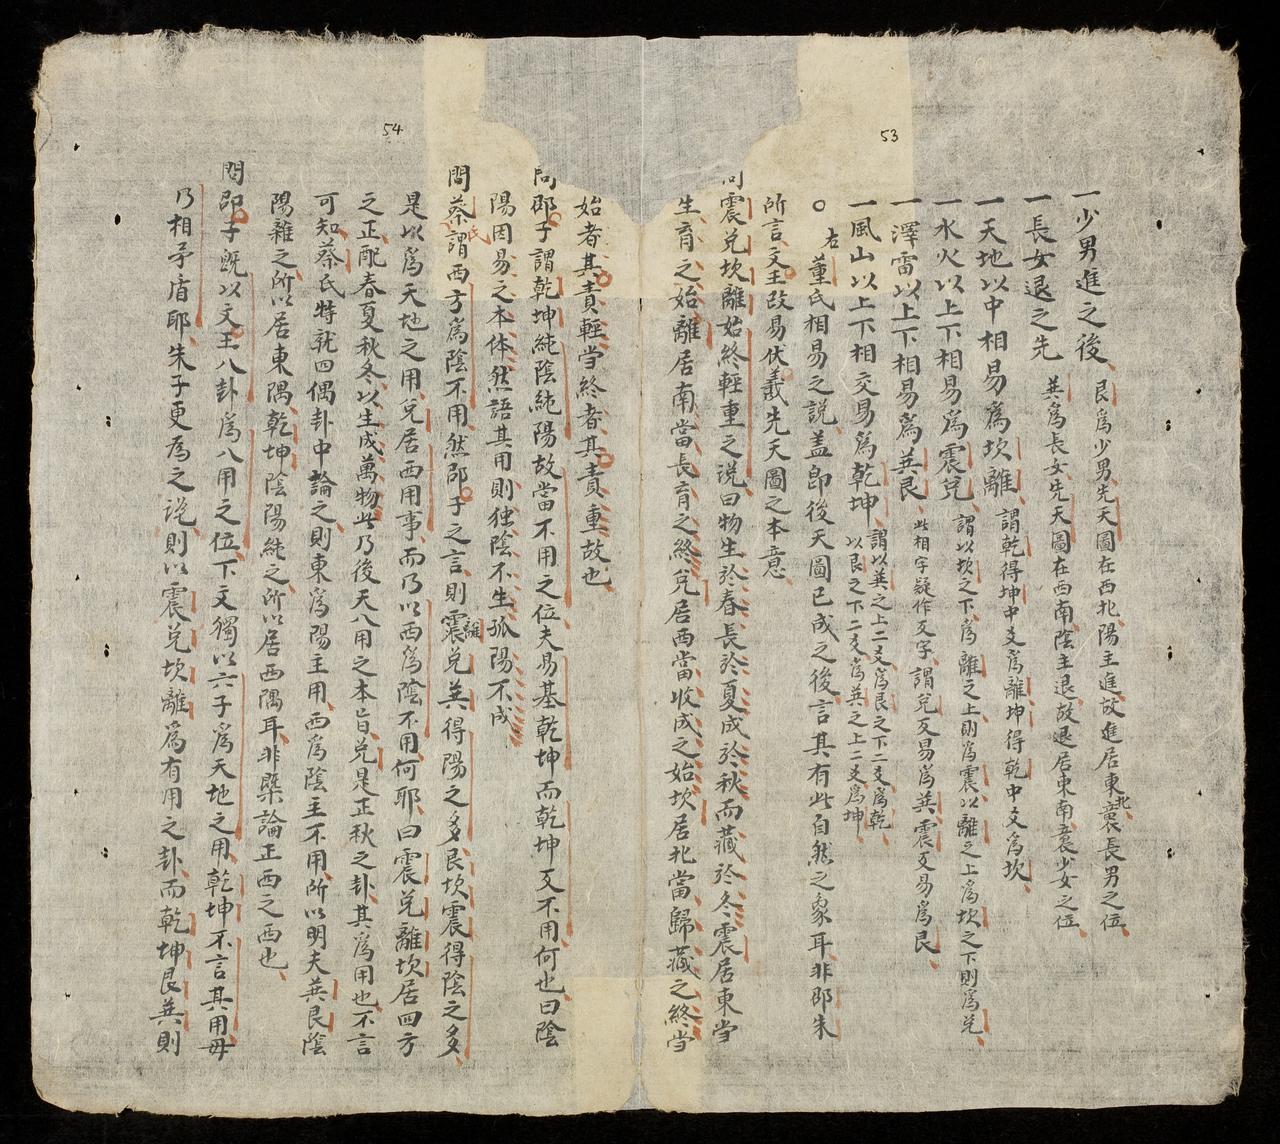 53
一少男進之後 艮爲少男先天圖在西北陽主進故進居東北襲長男之位
一長女退之先 巽爲長女先天圖在西南陰主退故退居東南襄少女之位
一天地以中相易爲坎離 謂乾得坤中爻爲離坤得乾中爻爲坎
一水火以上下相易爲震兌 謂以坎之下爲離之上則爲震以離之上爲坎之下則爲兌
一澤雷以上下相易爲巽艮 此相字疑作交字謂兌交易爲巽震交易爲艮
一風山以上下相交易爲乾坤 謂以巽之上二爻爲艮之下二爻爲乾
以艮之下二爻爲巽之上二爻爲坤
○右董氏相易之說盖卽後天圖已成之後言其有此自然之象耳非邵朱
所言文王改易伏羲先天圖之本意
問震兌坎離始終輕重之說曰物生於春長於夏成於秋而藏於冬震居東當
生育之始離居南當長育之終兌居西當收成之始坎居北當歸藏之終當
始者其責輕當終者其責重故也
問邵子謂乾坤純陰純陽故當不用之位夫易基乾坤而乾坤反不用何也曰陰
陽因易之本体然語其用則独陰不生孤陽不成
54
問蔡氏謂西方爲陰不用然邵子之言則震離兌巽得陽之多艮坎震得陰之多
是以爲天地之用兌居西用事而乃以西爲陰不用何耶曰震兌離坎居四方
之正配春夏秋冬以生成萬物此乃後天八用之本旨兌是正秋之卦其爲用也不言
可知蔡氏特就四偶卦中論之則東爲陽主用西爲陰主不用所以明夫巽艮陰
陽雜之所以居東隅乾坤陰陽純之所以居西隅耳非槩論正西之西也
問邵子旣以文王八卦爲八用之位下文獨以六子爲天地之用乾坤不言其用毋
乃相矛盾耶朱子更爲之說則以震兌坎離爲有用之卦而乾坤艮巽則